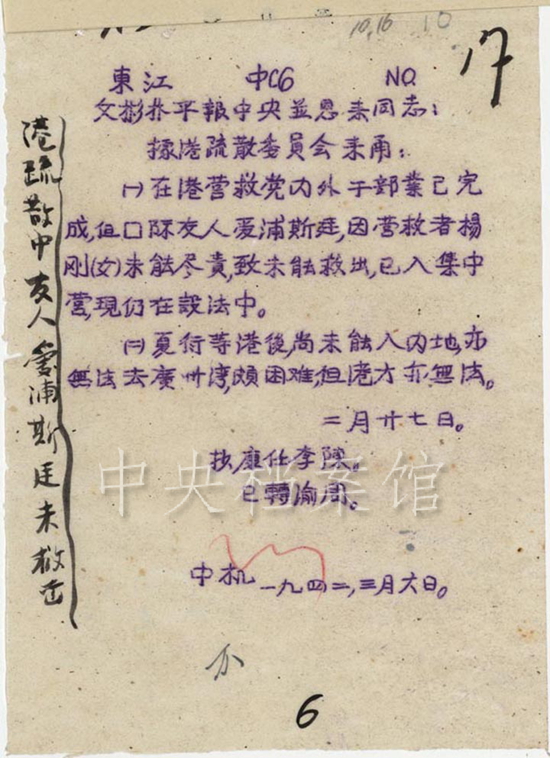 10,16 10
17
東江 中C6 NO.
文彬并平報中央並恩来同志:
據港疏散委員会来甬:
㈠在港营救党内外干部業已完
成,但口际友人爱浦斯廷,因营救者楊
刚(女)未能尽責,致未能救出,已入集中
营,現仍在設法中。
㈡夏衍等港後,尚未能入内地,亦
無法去廣州湾,頗困难,但港方亦無法。
二月廿七日。
扶廉任李陳。
已轉渝周。
中机 一九四二,三月六日。
6
港疏散中友人爱浦斯廷未救出
中央档案馆